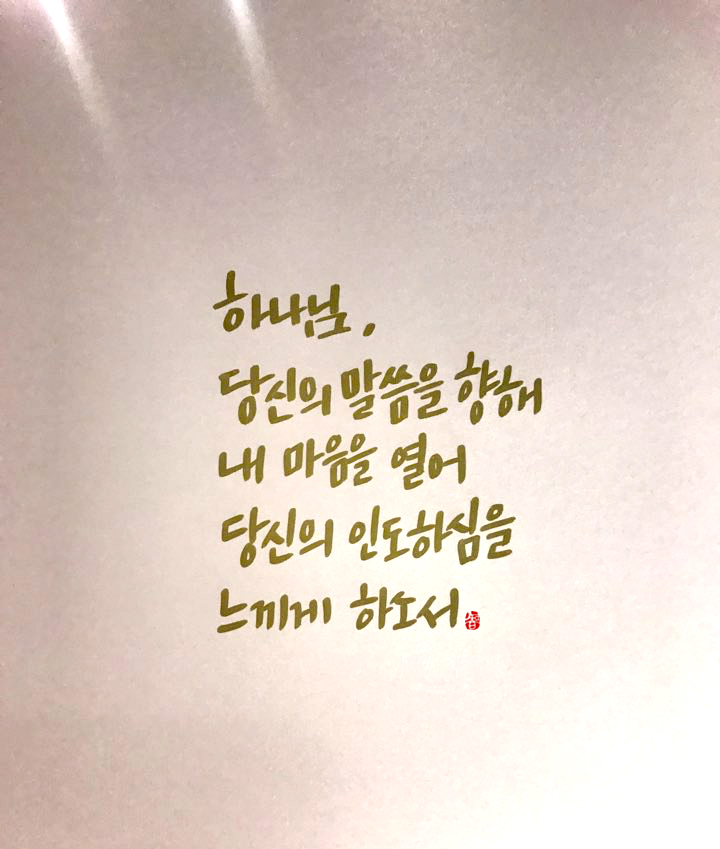 하나님,
당신의 말씀을 향해
내 마음을 열어
당신의 인도하심을
느끼게 하도서